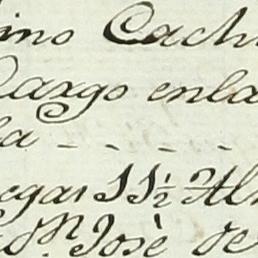 ino Cach
Cargo enla
la - - - -
egas 11½ Al
d.n Josè de